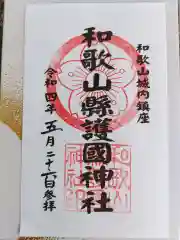 和歌山城内鎮座
和歌山縣護國神社
令和四年五月二十一日参拝